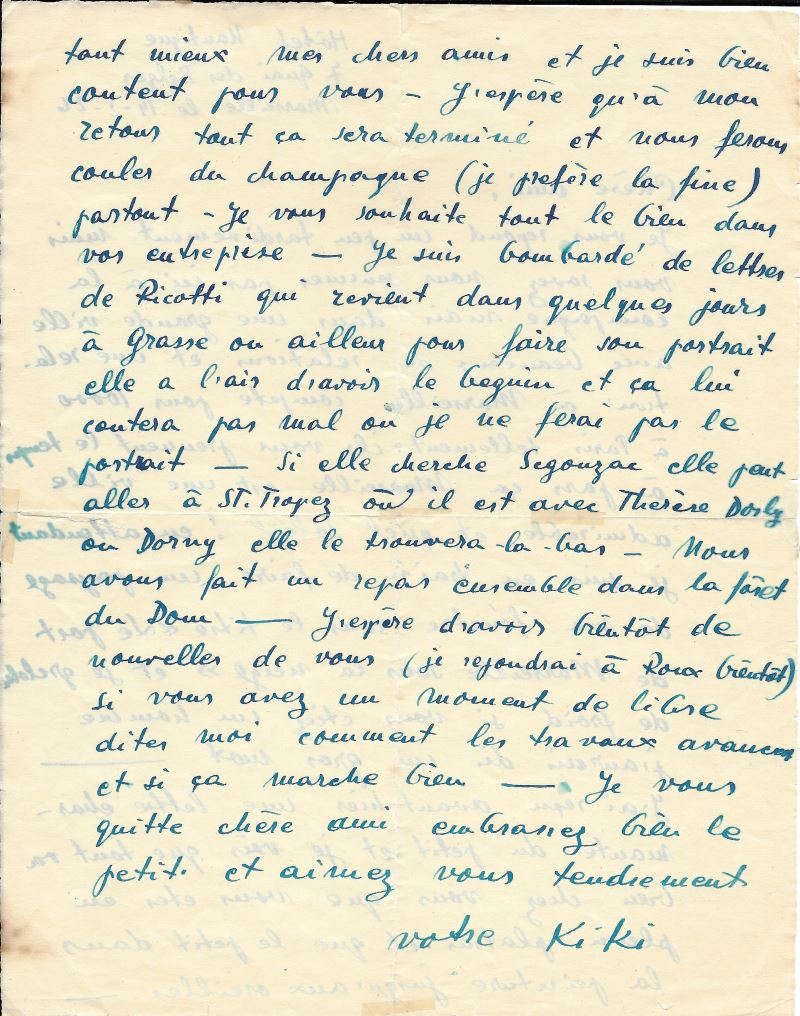 tant mieux mes chers amis et je suis bien
content pour vous – J'espère qu'à mon
retour tout ça sera terminé et nous ferons
couler du champagne (je prefère la fine)
partout – Je vous souhaite tout le bien dans
vos entreprise – Je suis bombardé de lettres
de Ricotti qui revient dans quelques jours
à Grasse ou ailleur pour faire son portrait
elle a l'air d'avoir le beguin et ça lui
contera pas mal où je ne ferai pas le
portrait – Si elle cherche Segonzac elle peut
aller à St. Tropez où il est avec Thérèse Dorly
ou Dorny elle le trouvera-la-bas – Nous
avons fait un repas ensemble dans la fôret
du Dom — J'espère d'avoir bientôt de
nouvelles de vous (je repondrai à Roux bientôt)
si vous avez un moment de libre
dites moi comment les travaux avancent
et si ça marche bien — Je vous
quitte chère ami embrassez bien le
petit. et aimez vous tendrement
votre KiKi